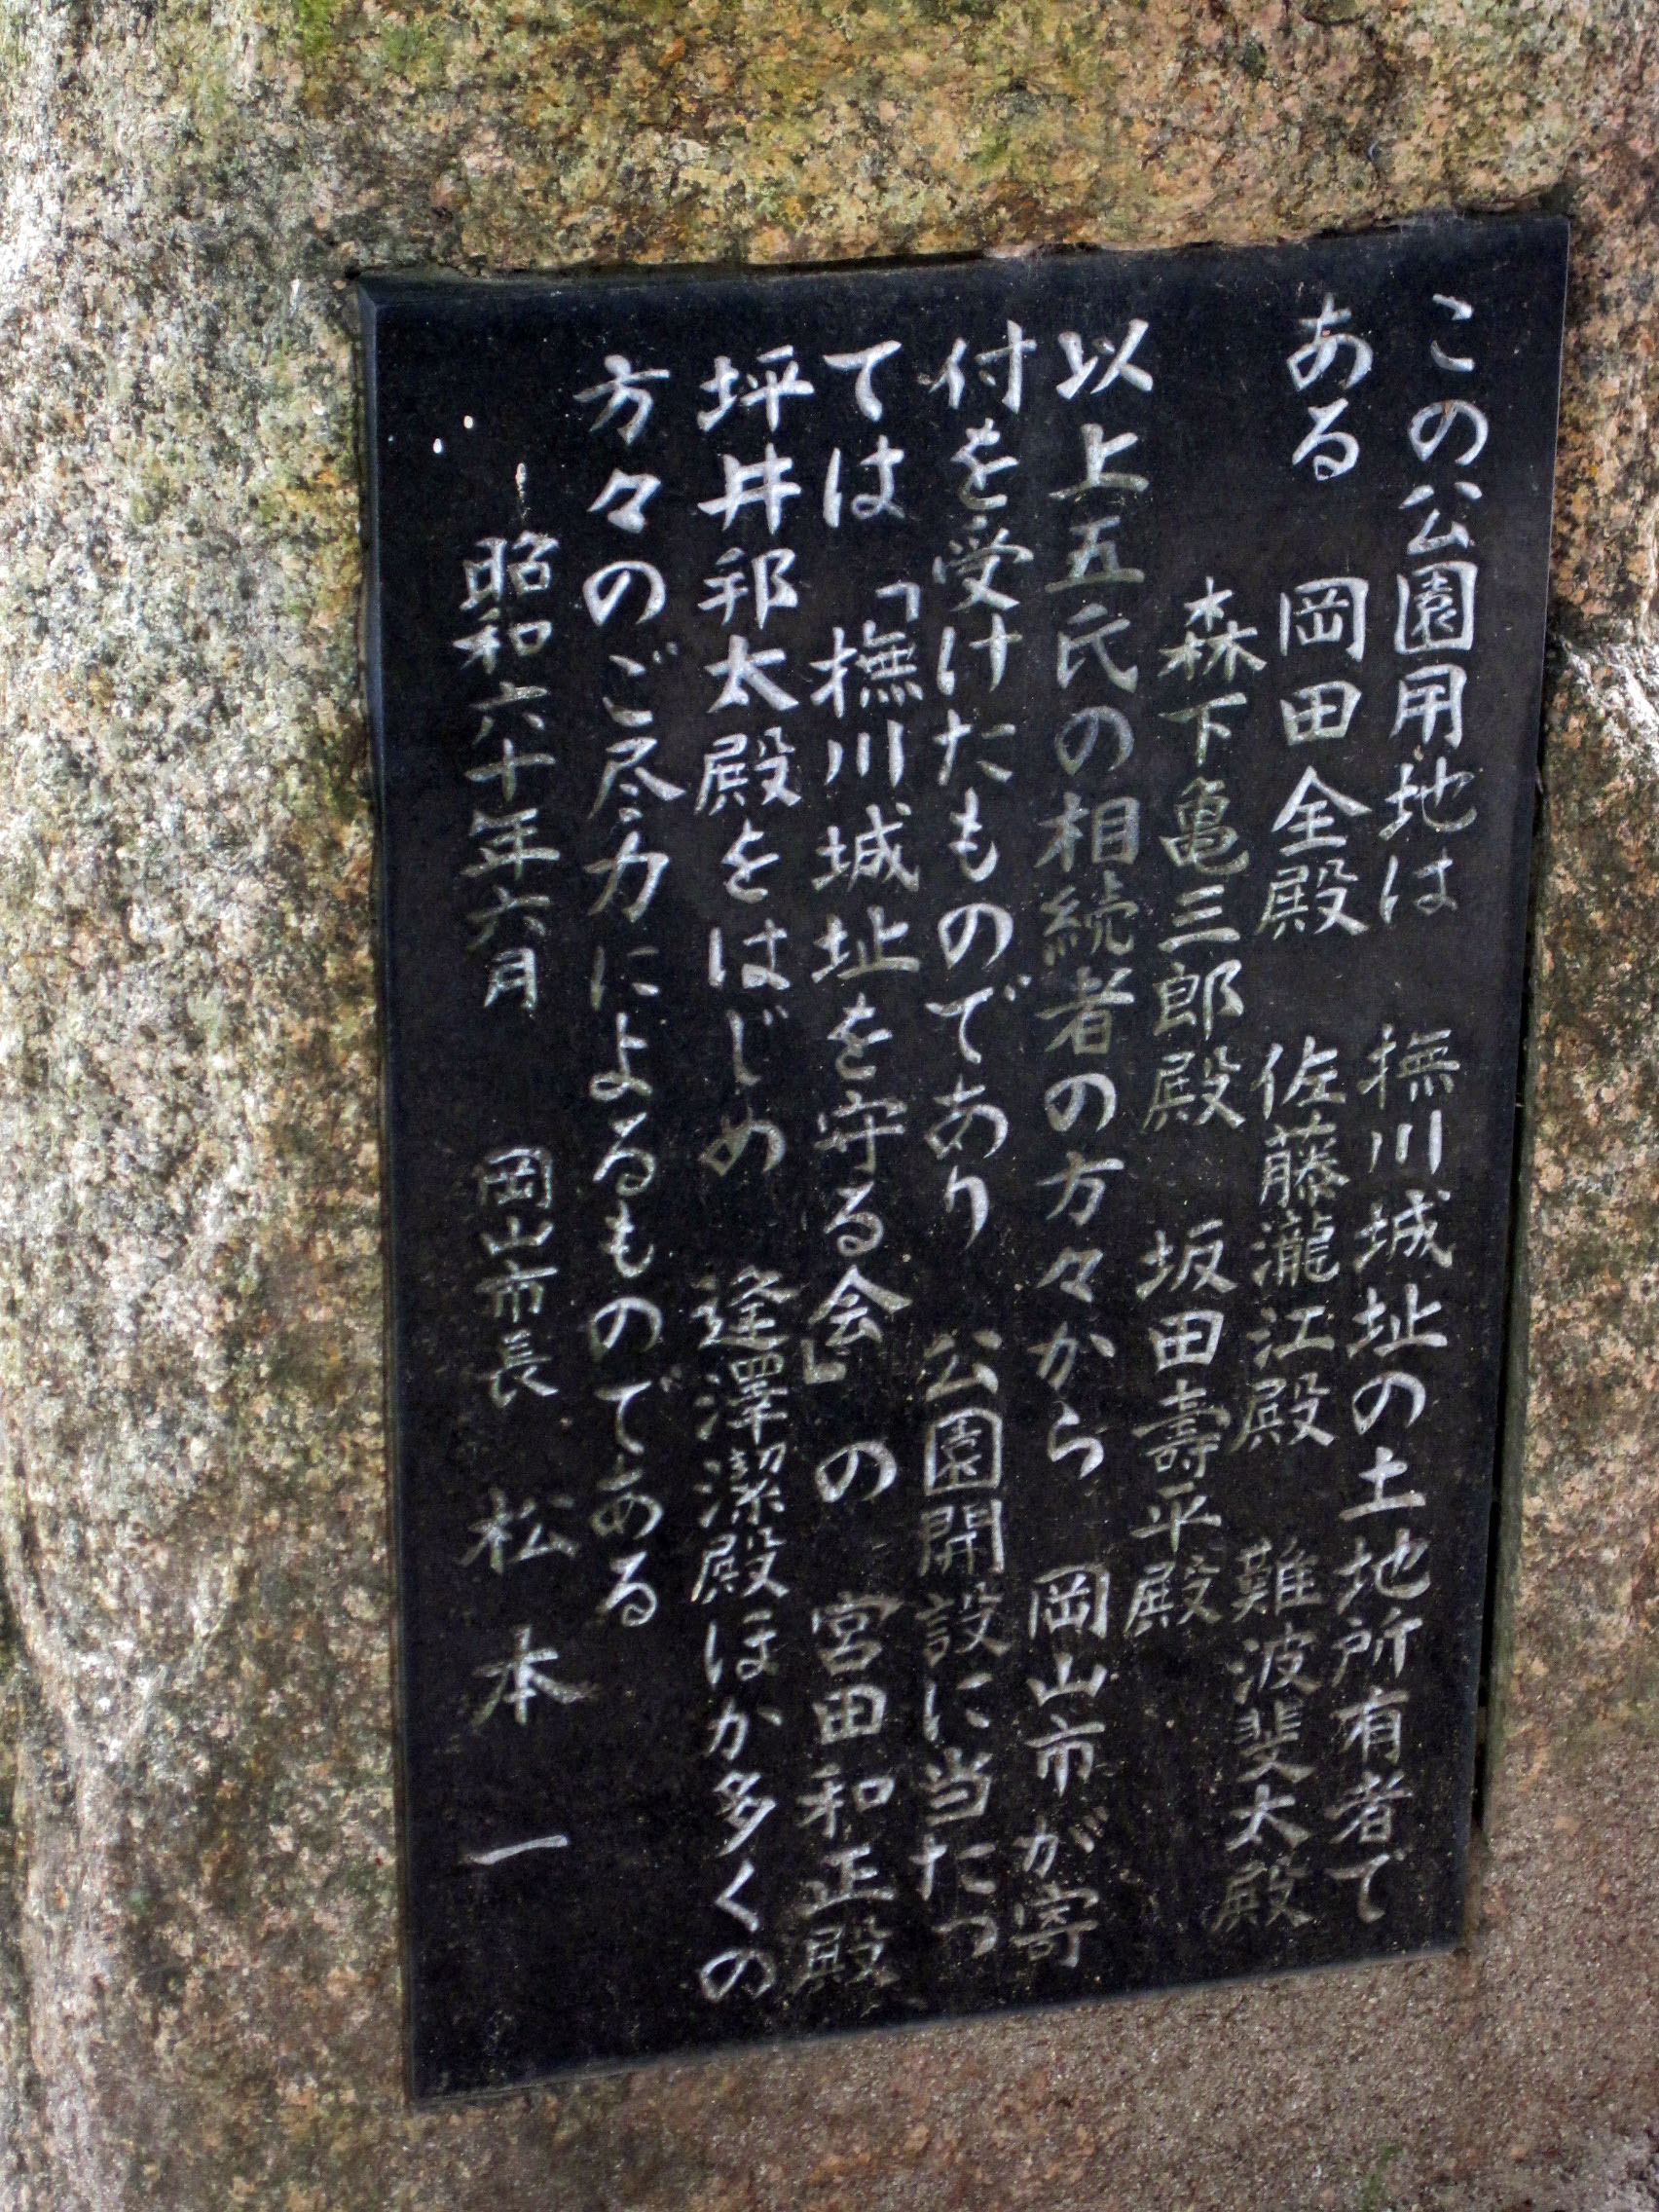 この公園用地は　撫川城址の土地所有者て
ある　岡田全殿　佐藤瀧江殿　難波斐太殿
森下亀三郎殿　坂田壽平殿
以上五氏の相続者の方々から　岡山市が寄
付を受けたものであり　公園開設に当たっ
ては　「撫川城址を守る会」の　宮田和正殿
坪井邦太殿をはじめ　逢澤潔殿ほか多くの
方々のご尽力によるものである
昭和六十年六月　岡山市長　松本一